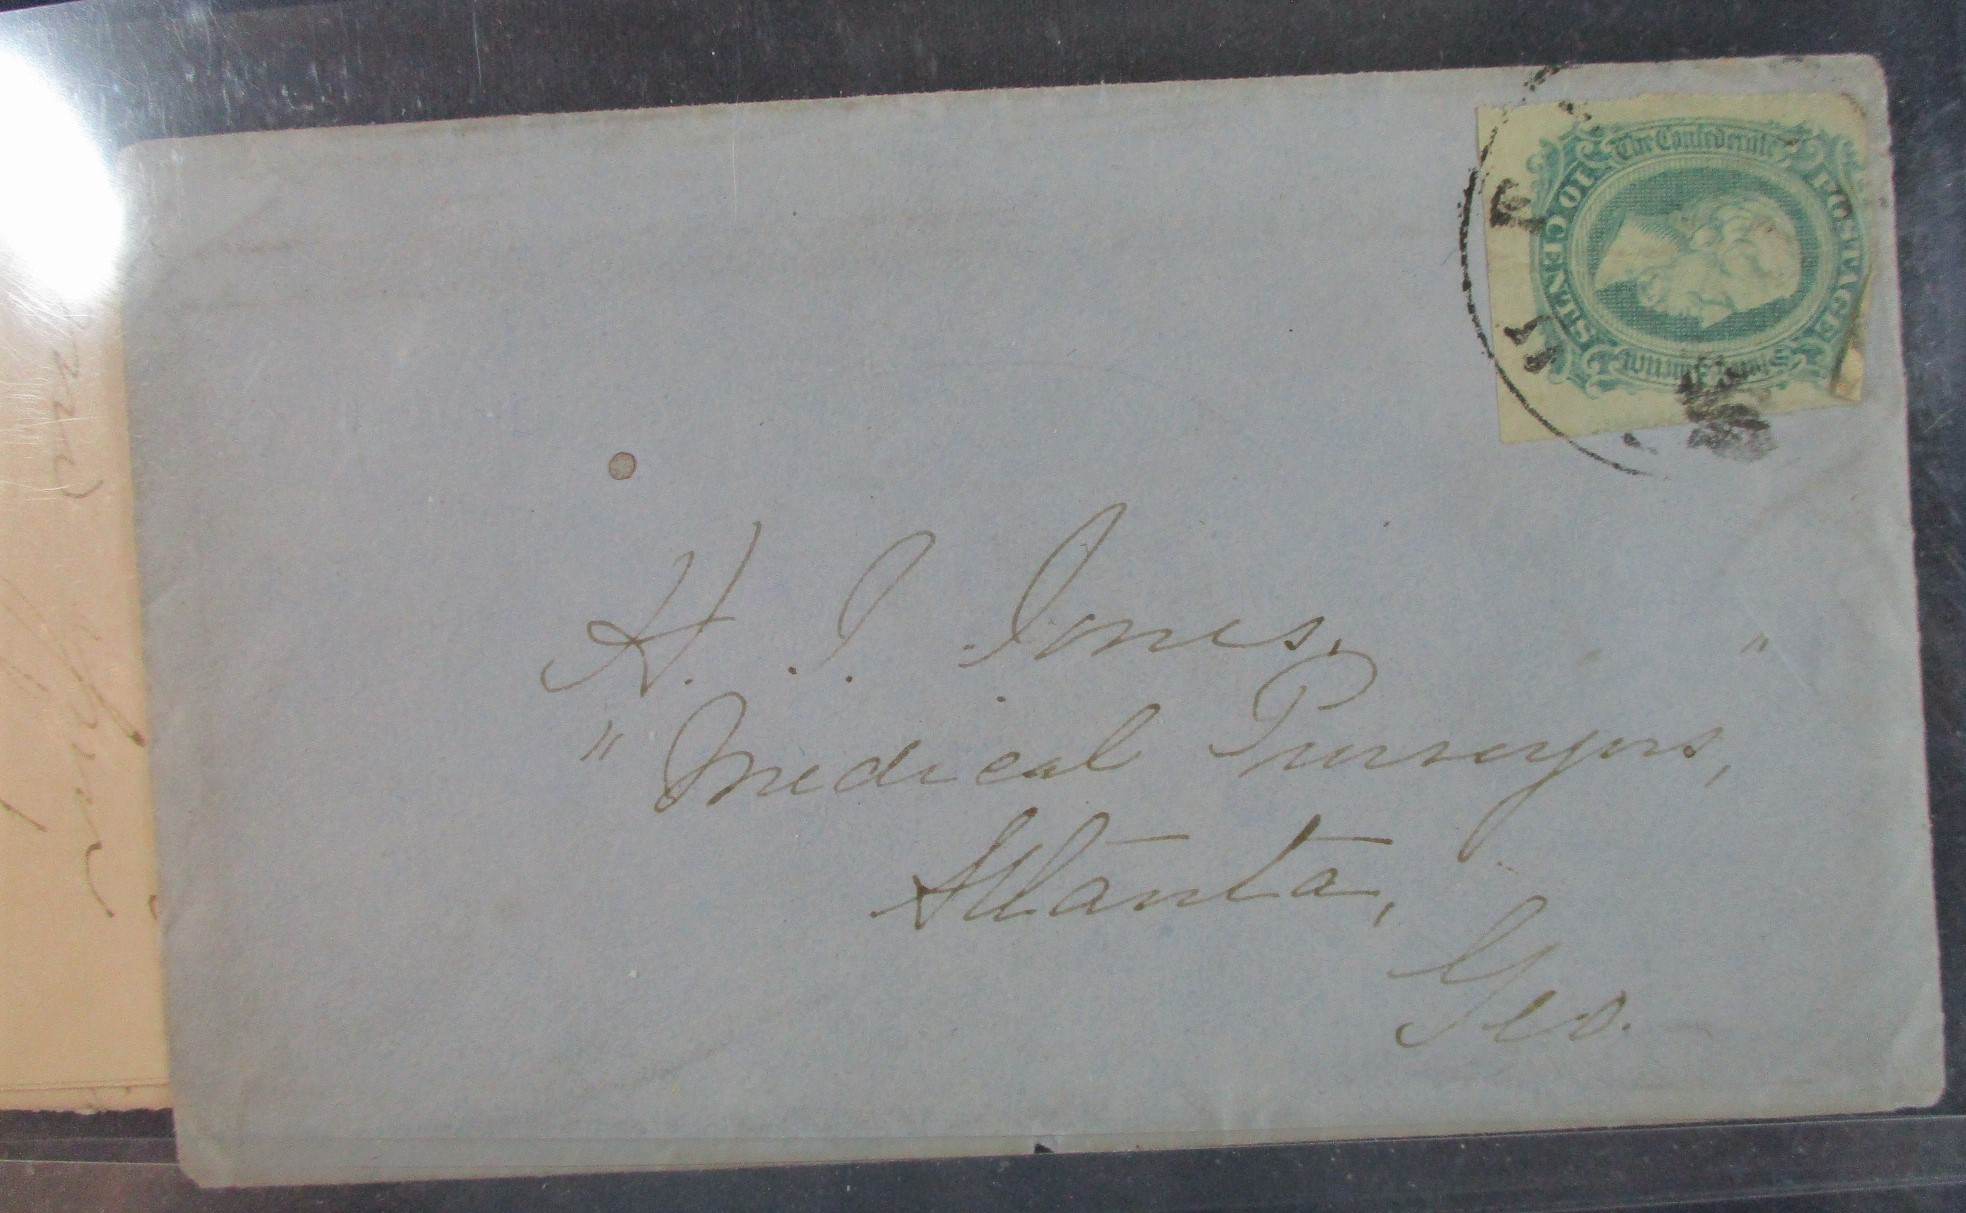 The Confederate
States of America
POSTAGE
10 CENTS
H. P. Jones,
" Medical Purveyors, "
Atlanta,
Geo.